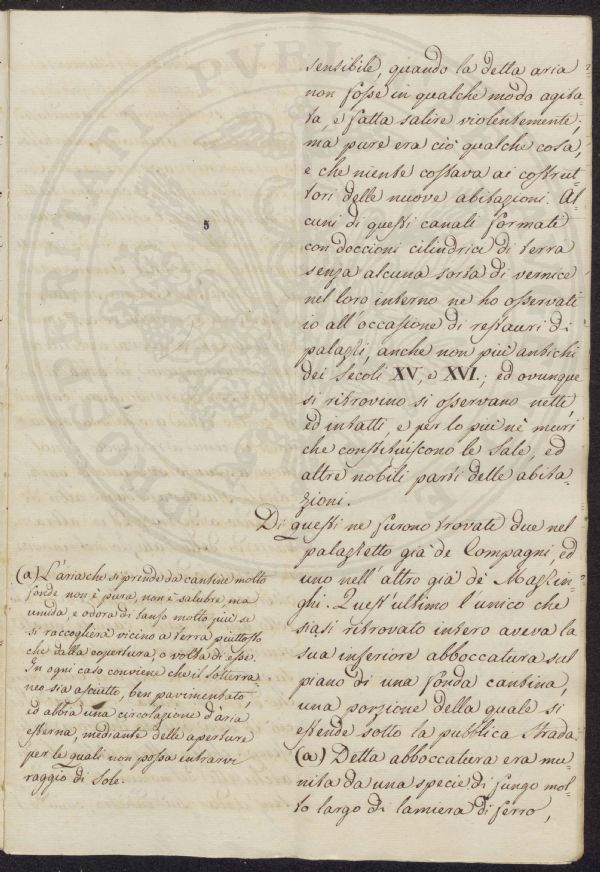 sensibile, quando la detta aria
non fosse in qualche modo agita=
ta, e fatta salire violentemente;
ma pure era ciò qualche cosa,
e che niente costava ai costrut=
tori delle nuove abitazioni. Al=
cuni di questi canali formati
con doccioni cilindrici di terra
senza alcuna sorta di vernice
nel loro interno ne ho osservati
io all'occasione di restauri di
palazzi, anche non più antichi
dei secoli XV, e XVI.; ed ovunque
si ritrovino si osservano netti,
ed intatti, e per lo più nè muri
che constituiscono le Sale, ed
altre nobili parti delle abita=
zioni.
Di questi ne furono trovate due nel
palazzetto già de Compagni, ed
uno nell'altro già de' Mazzin=
ghi. Quest'ultimo l'unico che
siasi ritrovato intero aveva la
sua inferiore abboccatura sul
piano di una fonda cantina,
una porzione della quale si
estende sotto la pubblica strada
(a) Detta abboccatura era mu=
nita da una specie di fungo mol=
to largo di lamiera di ferro,
(a) L'aria che si prende da cantine molto
fonde non è pura, non è salubre, ma
umida, e odora di tanfo molto più se
si raccoglierà vicino a terra piuttosto
che dalla copertura, o volta di esse.
In ogni caso conviene che il sotterra=
neo sia asciutto, ben pavimentato,
ed abbia una circolazione d'aria
esterna, mediante delle aperture
per le quali non possa intrarvi
raggio di Sole.
5
PROSPERITATI PVBLICAE